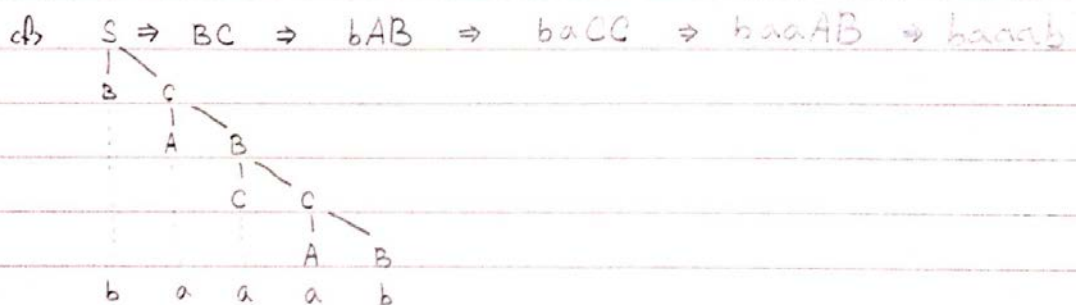 <f> S ⇒ BC ⇒ bAB ⇒ baCC ⇒ baaAB ⇒ baaab
B C
A B
C C
A B
b a a a b